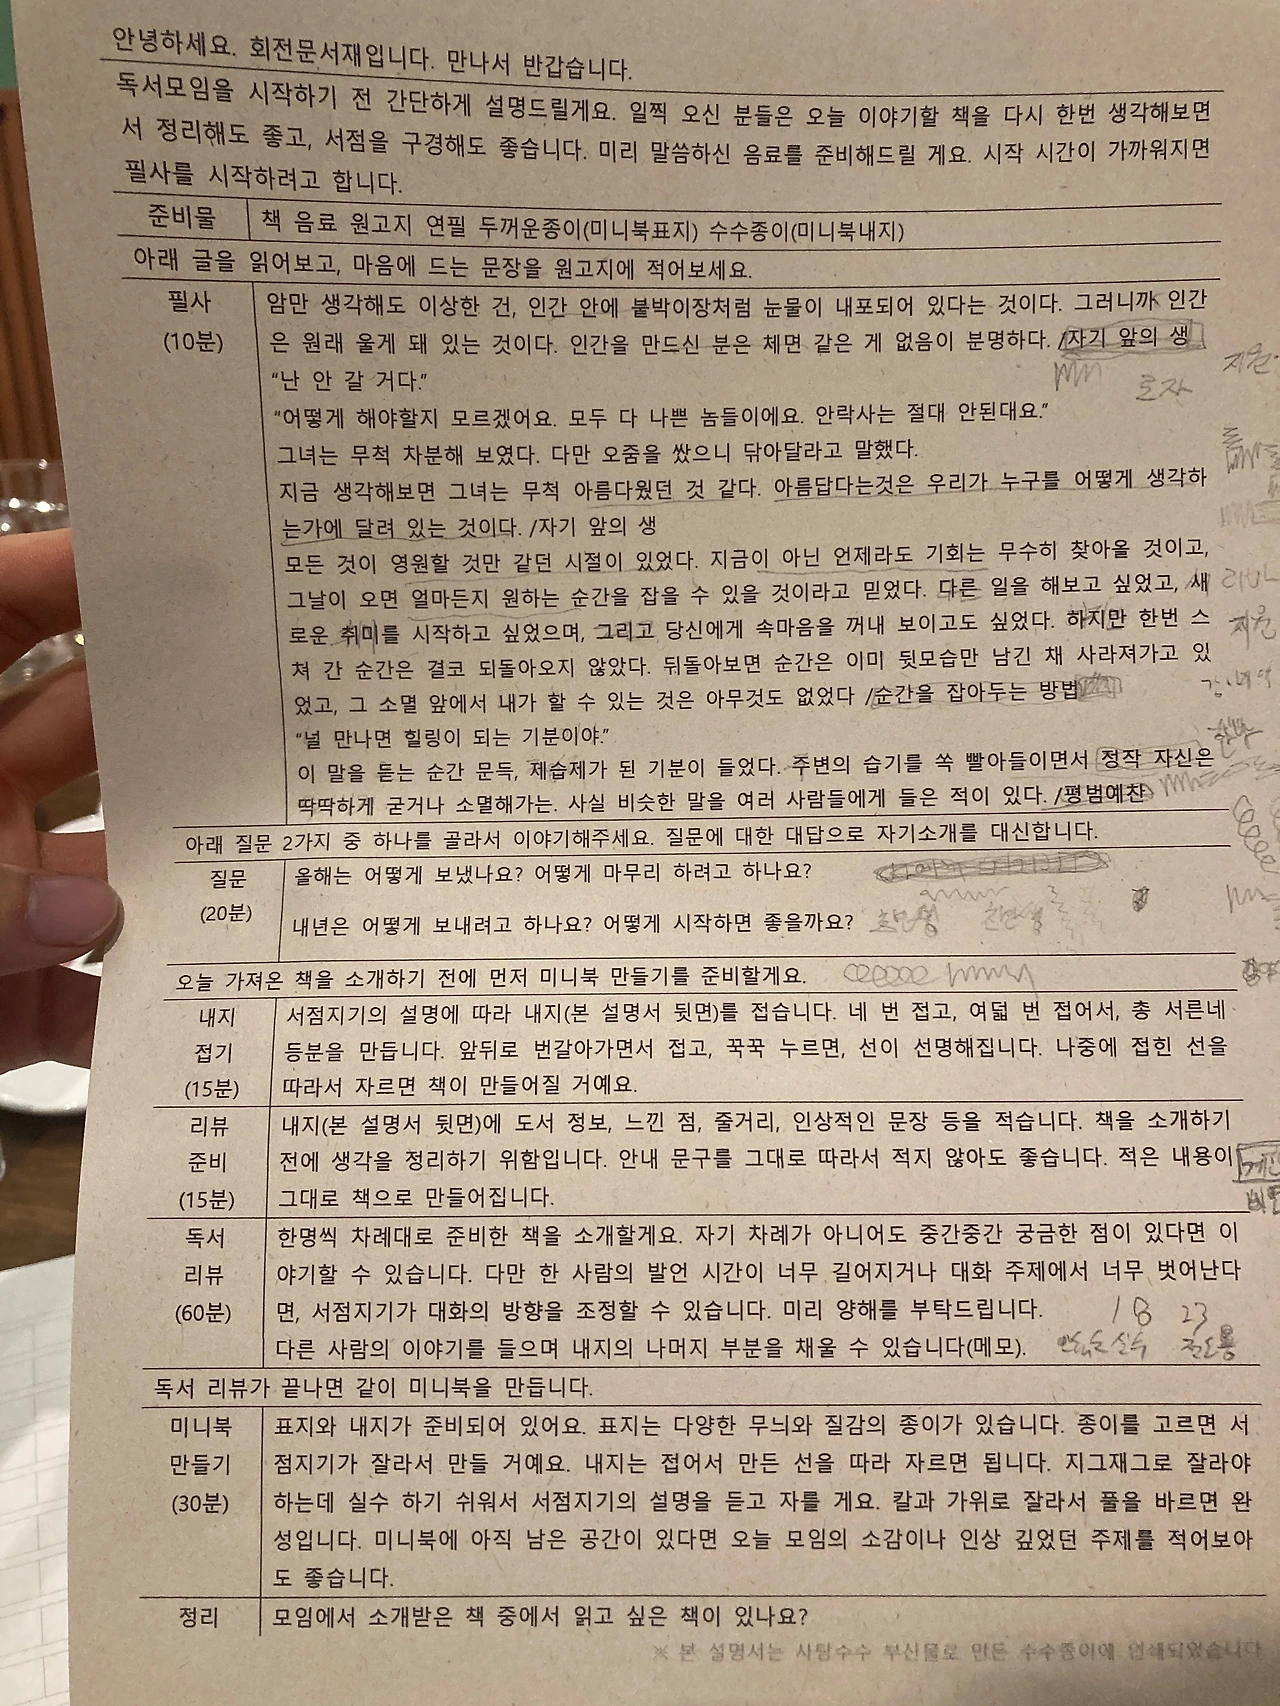 안녕하세요. 회전문서재입니다. 만나서 반갑습니다.
독서모임을 시작하기 전 간단하게 설명드릴게요. 일찍 오신 분들은 오늘 이야기할 책을 다시 한번 생각해보면
서 정리해도 좋고, 서점을 구경해도 좋습니다. 미리 말씀하신 음료를 준비해드릴 게요. 시작 시간이 가까워지면
필사를 시작하려고 합니다.
준비물 책 음료 원고지 연필 두꺼운종이(미니북표지) 수수종이(미니북내지)
아래 글을 읽어보고, 마음에 드는 문장을 원고지에 적어보세요.
필사 암만 생각해도 이상한 건, 인간 안에 붙박이장처럼 눈물이 내포되어 있다는 것이다. 그러니까 인간
(10분) 은 원래 울게 돼 있는 것이다. 인간을 만드신 분은 체면 같은 게 없음이 분명하다. /자기 앞의 생
지원
“난 안 갈 거다.”
로자
“어떻게 해야할지 모르겠어요. 모두 다 나쁜 놈들이에요. 안락사는 절대 안된대요.”
그녀는 무척 차분해 보였다. 다만 오줌을 쌌으니 닦아달라고 말했다.
지금 생각해보면 그녀는 무척 아름다웠던 것 같다. 아름답다는것은 우리가 누구를 어떻게 생각하
는가에 달려 있는 것이다. /자기 앞의 생
모든 것이 영원할 것만 같던 시절이 있었다. 지금이 아닌 언제라도 기회는 무수히 찾아올 것이고,
그날이 오면 얼마든지 원하는 순간을 잡을 수 있을 것이라고 믿었다. 다른 일을 해보고 싶었고, 새
로운 취미를 시작하고 싶었으며, 그리고 당신에게 속마음을 꺼내 보이고도 싶었다. 하지만 한번 스
지원
쳐 간 순간은 결코 되돌아오지 않았다. 뒤돌아보면 순간은 이미 뒷모습만 남긴 채 사라져가고 있
었고, 그 소멸 앞에서 내가 할 수 있는 것은 아무것도 없었다 /순간을 잡아두는 방법
“널 만나면 힐링이 되는 기분이야.”
이 말을 듣는 순간 문득, 제습제가 된 기분이 들었다. 주변의 습기를 쏙 빨아들이면서 정작 자신은
딱딱하게 굳거나 소멸해가는. 사실 비슷한 말을 여러 사람들에게 들은 적이 있다. /평범예찬
아래 질문 2가지 중 하나를 골라서 이야기해주세요. 질문에 대한 대답으로 자기소개를 대신합니다.
질문 올해는 어떻게 보냈나요? 어떻게 마무리 하려고 하나요?
(20분)
내년은 어떻게 보내려고 하나요? 어떻게 시작하면 좋을까요?
오늘 가져온 책을 소개하기 전에 먼저 미니북 만들기를 준비할게요.
내지 서점지기의 설명에 따라 내지(본 설명서 뒷면)를 접습니다. 네 번 접고, 여덟 번 접어서, 총 서른네
접기 등분을 만듭니다. 앞뒤로 번갈아가면서 접고, 꾹꾹 누르면, 선이 선명해집니다. 나중에 접힌 선을
(15분) 따라서 자르면 책이 만들어질 거예요.
리뷰 내지(본 설명서 뒷면)에 도서 정보, 느낀 점, 줄거리, 인상적인 문장 등을 적습니다. 책을 소개하기
준비 전에 생각을 정리하기 위함입니다. 안내 문구를 그대로 따라서 적지 않아도 좋습니다. 적은 내용이
(15분) 그대로 책으로 만들어집니다.
독서 한명씩 차례대로 준비한 책을 소개할게요. 자기 차례가 아니어도 중간중간 궁금한 점이 있다면 이
리뷰 야기할 수 있습니다. 다만 한 사람의 발언 시간이 너무 길어지거나 대화 주제에서 너무 벗어난다
(60분) 면, 서점지기가 대화의 방향을 조정할 수 있습니다. 미리 양해를 부탁드립니다.
18 23
다른 사람의 이야기를 들으며 내지의 나머지 부분을 채울 수 있습니다(메모).
독서 리뷰가 끝나면 같이 미니북을 만듭니다.
미니북 표지와 내지가 준비되어 있어요. 표지는 다양한 무늬와 질감의 종이가 있습니다. 종이를 고르면 서
만들기 점지기가 잘라서 만들 거예요. 내지는 접어서 만든 선을 따라 자르면 됩니다. 지그재그로 잘라야
(30분) 하는데 실수 하기 쉬워서 서점지기의 설명을 듣고 자를 게요. 칼과 가위로 잘라서 풀을 바르면 완
성입니다. 미니북에 아직 남은 공간이 있다면 오늘 모임의 소감이나 인상 깊었던 주제를 적어보아
도 좋습니다.
정리 모임에서 소개받은 책 중에서 읽고 싶은 책이 있나요?
※ 본 설명서는 사탕수수 부산물로 만든 수수종이에 인쇄되었습니다